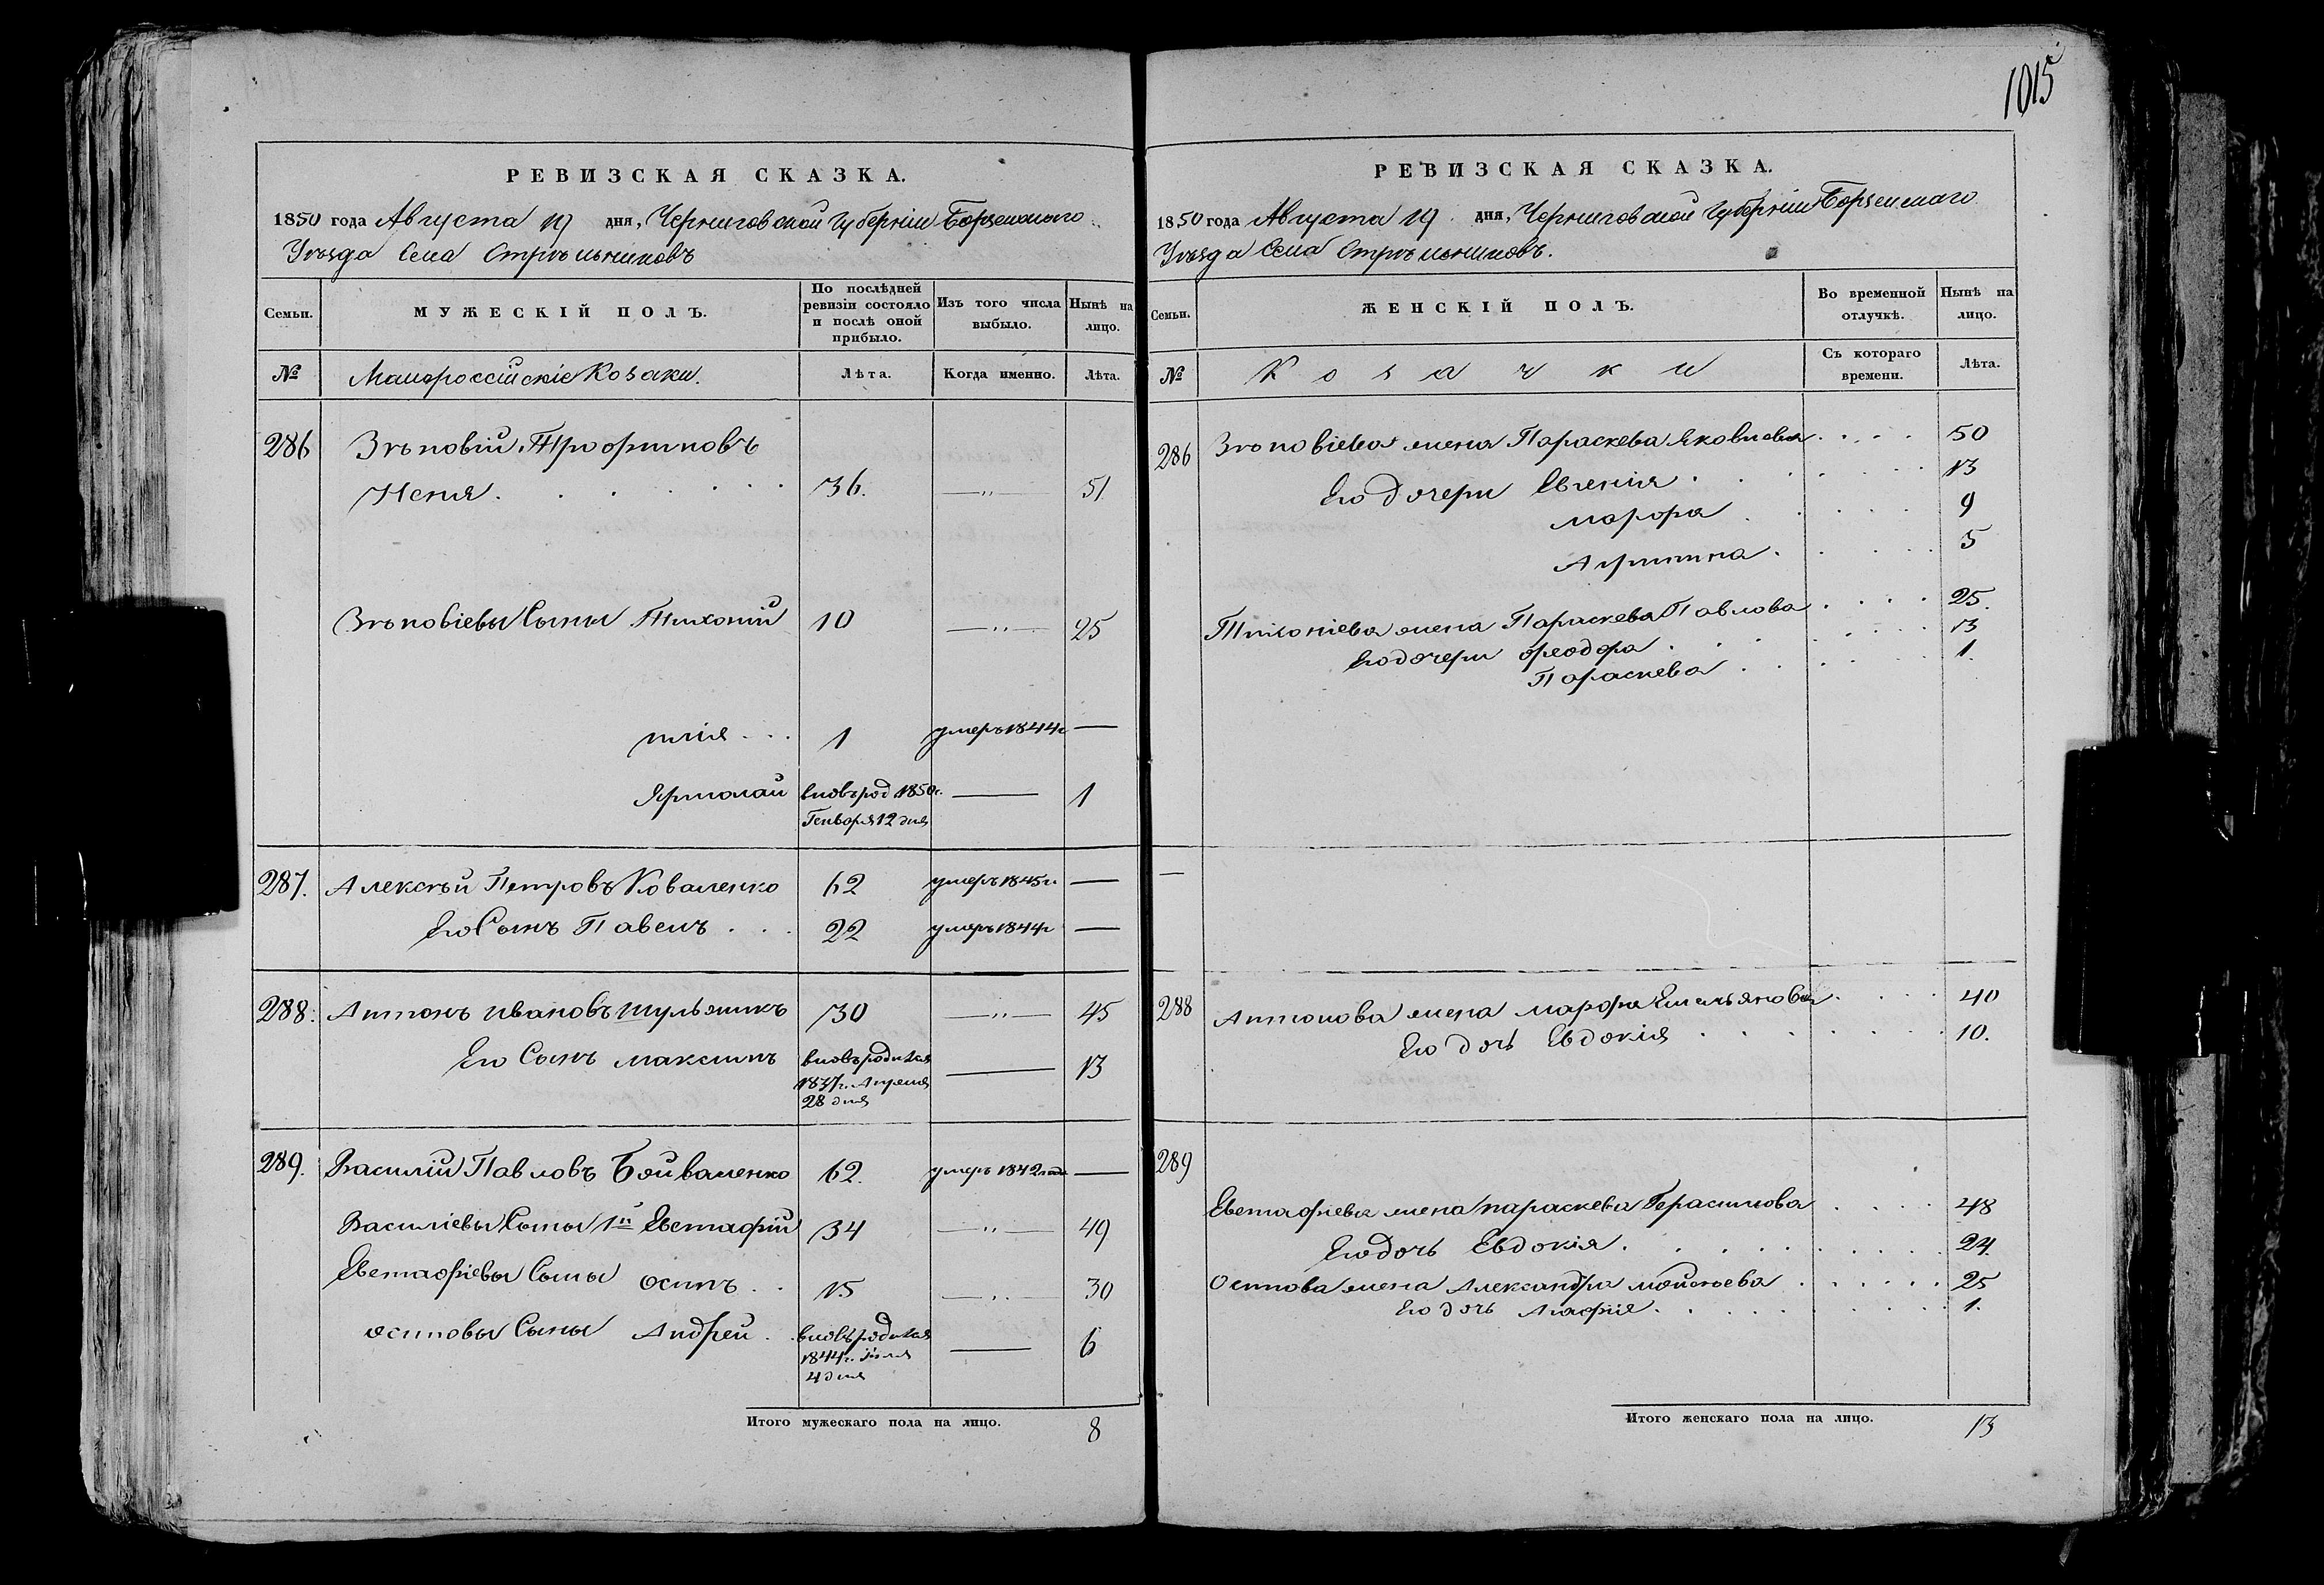 1015
РЕВИЗСКАЯ СКАЗКА.
1850 года Августа 19 дня, Черниговской Губерніи Борзенского
Уѣзда Села Стрѣльниковъ
Семьи.
МУЖЕСКІЙ ПОЛЪ.
По послѣдней ревизіи состояло и послѣ оной прибыло.
Изъ того числа выбыло.
Нынѣ на лицо.
№
Малороссійскіе Козаки.
Лѣта.
Когда именно.
Лѣта.
286 Зѣновій Трофимовъ
36. —„— 51
Зѣновіевы Сыны Тихоній 10 —„— 25
Илія 1 умеръ 1844г —
Ярмолай вновь род 1850г. — 1
Генваря 12 дня
287. Алексѣй Петровъ Коваленко 62 умеръ 1845г. —
Его Сынъ Павелъ 22 умеръ 1844г —
288. Антонъ Ивановъ Шульжикъ 30 —„— 45
Его Сынъ Максимъ вновь родился — 13
1837г. Апреля
28 дня
289. Василій Павловъ 62. умеръ 1842 года —
Василіевы Сыны 1й Евстафій 34 —„— 49
Евстафіевы Сыны Осипъ 15 —„— 30
Осиповы Сыны Андрей вновь родился — 6
1844г. Іюля
4 дня
Итого мужескаго пола на лицо. 8
РЕВИЗСКАЯ СКАЗКА.
1850 года Августа 19 дня, Черниговской Губерніи Борзенскаго
Уѣзда Села Стрѣльниковъ.
Семьи.
ЖЕНСКІЙ ПОЛЪ.
Во временной отлучкѣ.
Нынѣ на лицо.
№
Козачки
Съ котораго времени.
Лѣта.
286 Зѣновіева жена Параскева Яковлева 50
Его дочери Евгенія 13
Марфа 9
5
Тихоніева жена Параскева Павлова 25.
Его дочери Феодора 13
Параскева 1.
—
288 Антонова жена Марфа Емельянова 40
Его дочь Евдокія 10.
289
Евстафіева жена Параскева Герасимова 48
Его дочь Евдокія 24
Осипова жена Александра 25
Его дочь Агафія 1.
Итого женскаго пола на лицо. 13